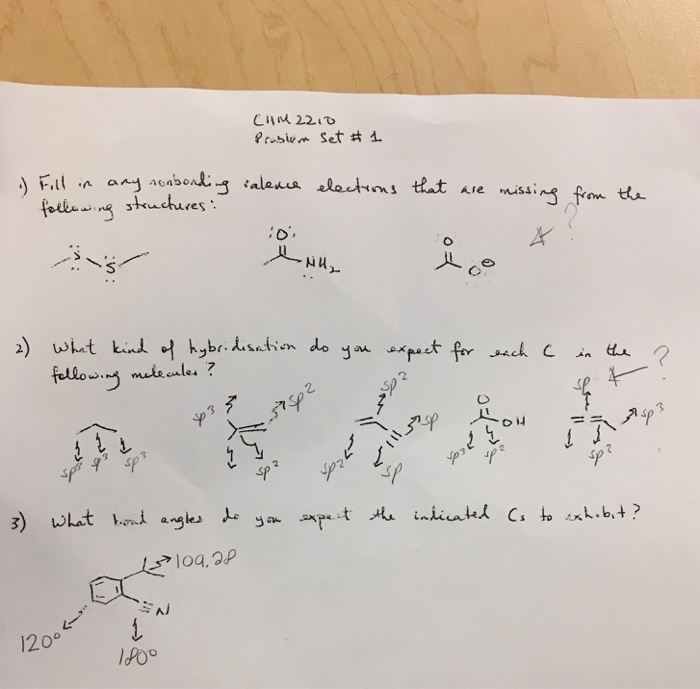 CHM 2210
Problem Set # 1
1) Fill in any nonbonding valence electrons that are missing from the
following structures:
?
S
S
:O:
NH2
O
O⊖
2) What kind of hybridisation do you expect for each C in the ?
following molecules?
sp3 sp3 sp3
sp3 sp2 sp2
sp2 sp sp2 sp
O OH sp3 sp2
sp sp3 sp2
3) What bond angles do you expect the indicated Cs to exhibit?
109.28
N
120°
180°